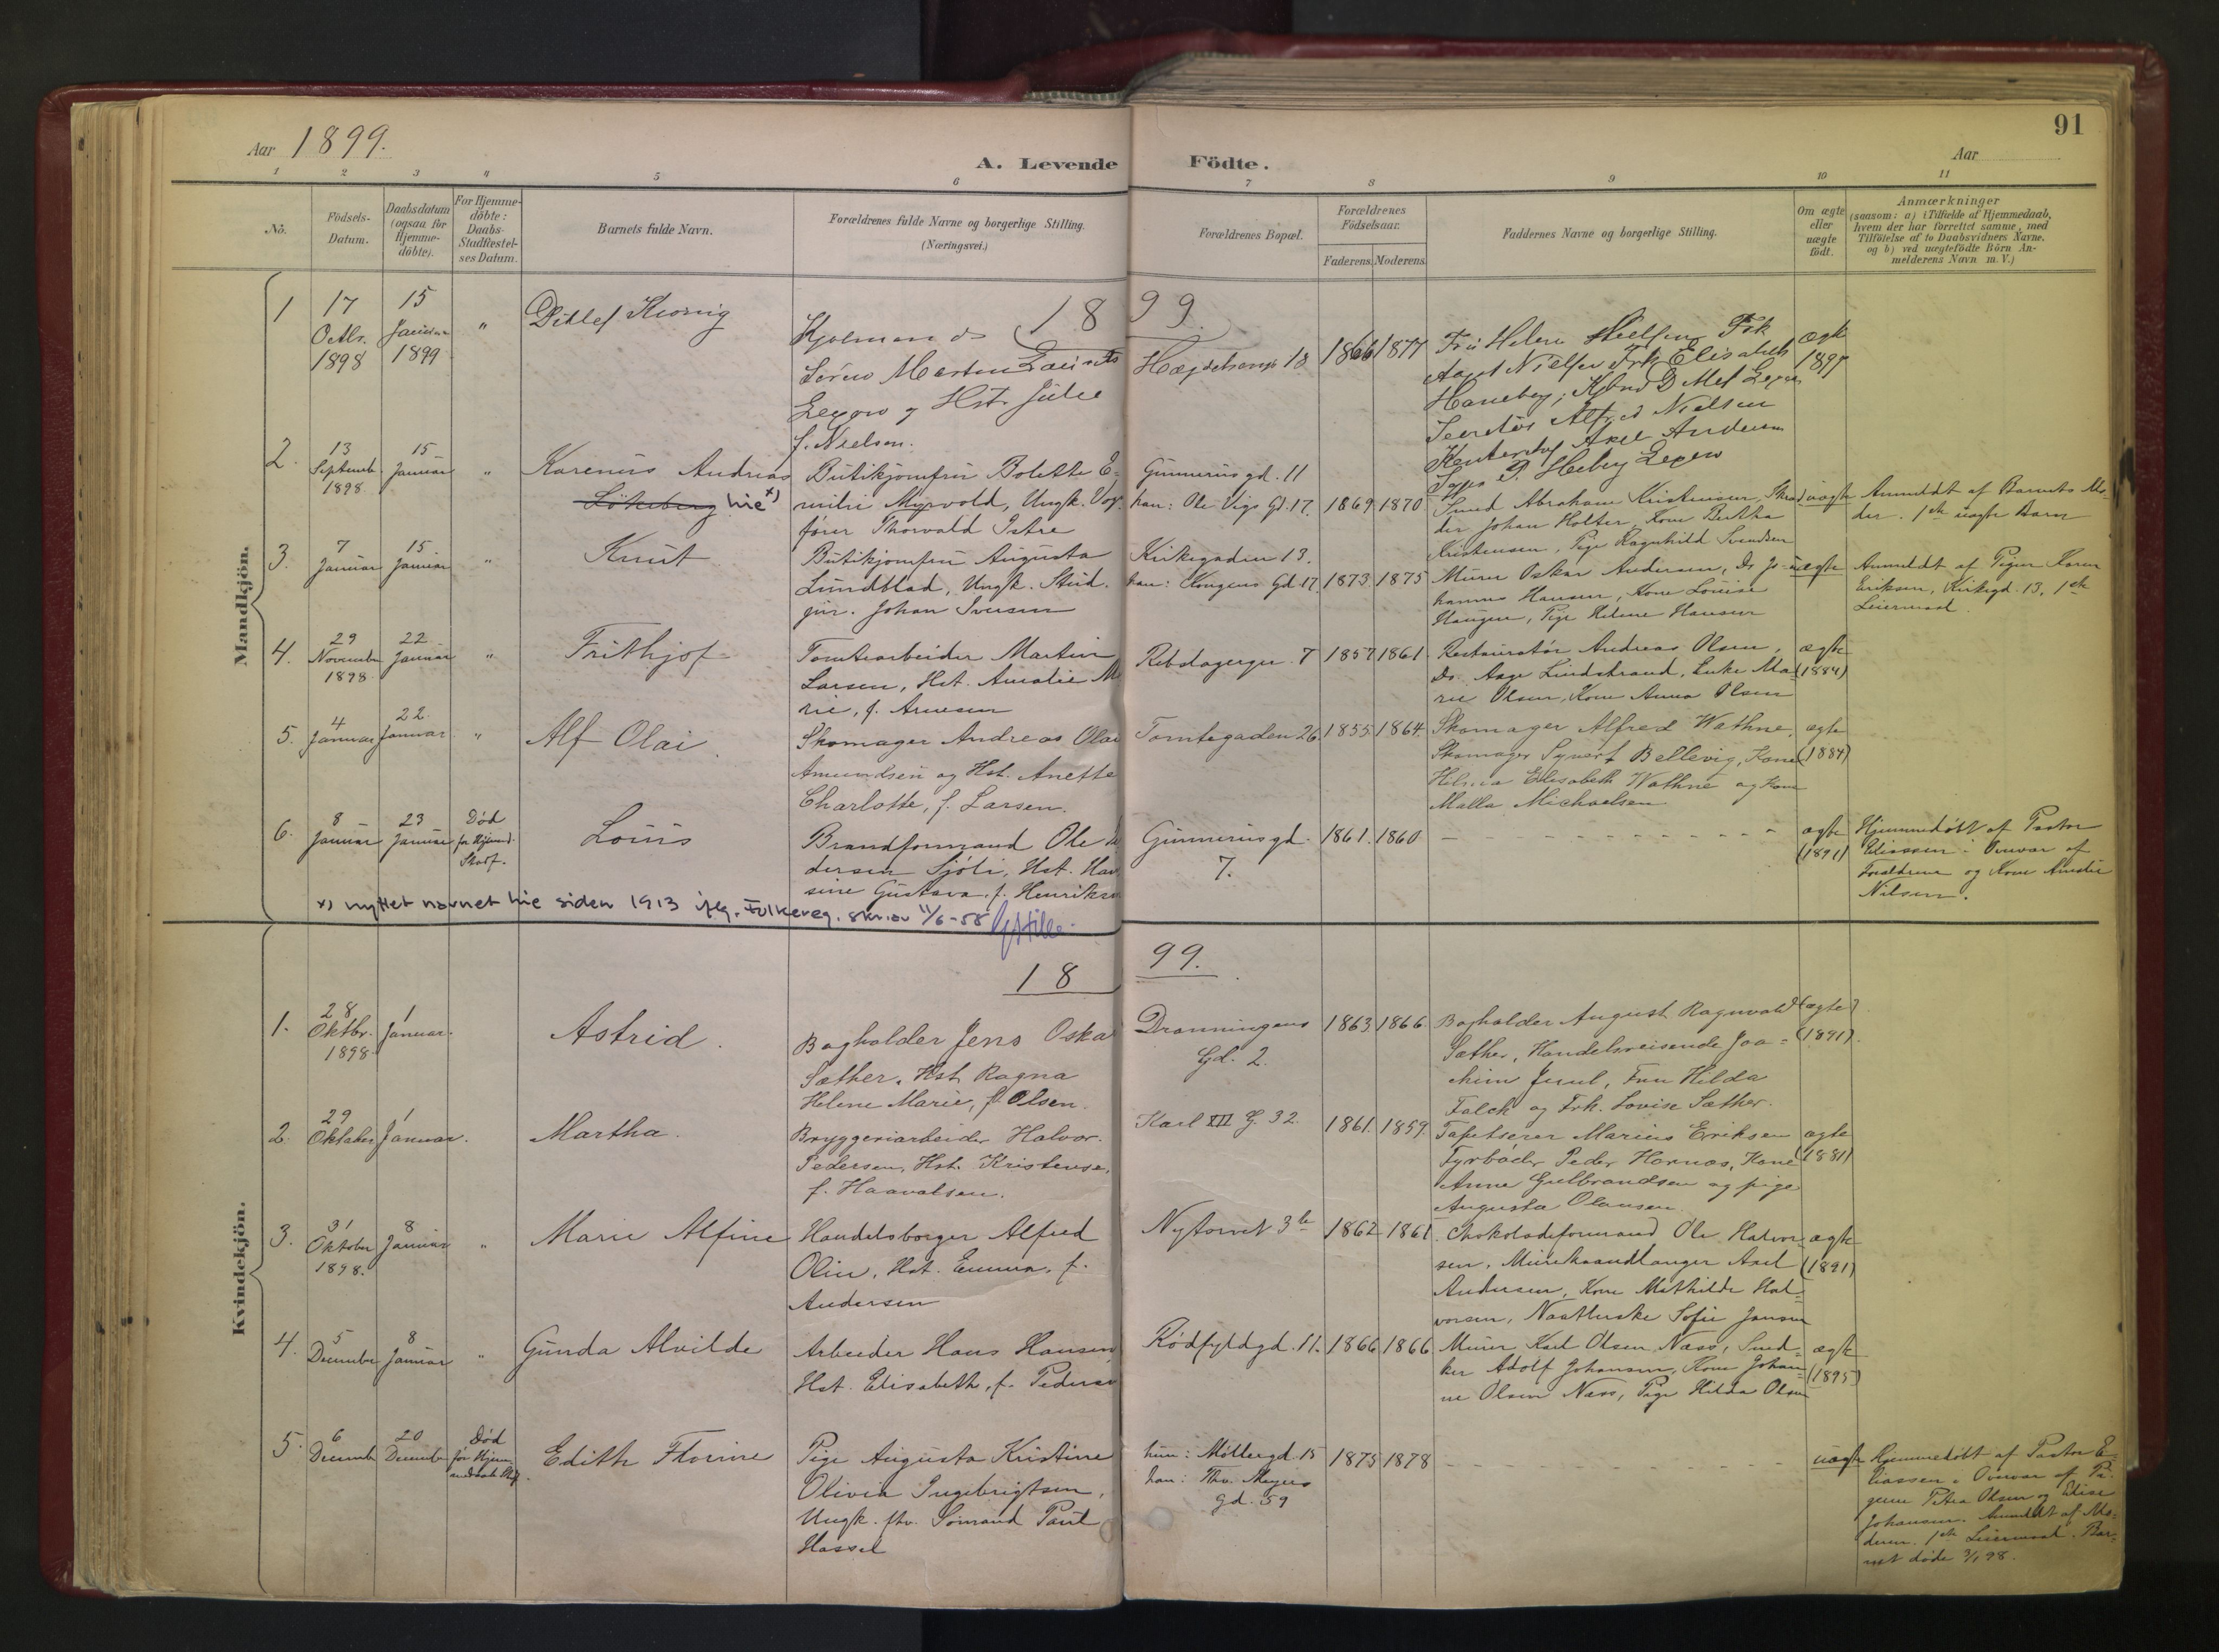 91
Aar 1899.
A. Levende Födte.
Aar
1 2 3 4 5 6 7 8 9 10 11
No.
Födsels-
Datum.
Daabsdatum
(ogsaa for
Hjemme-
döbte).
For Hjemme-
döbte:
Daabs-
Stadfæstel-
ses Datum.
Barnets fulde Navn.
Forældrenes fulde Navne og borgerlige Stilling.
(Næringsvei.)
Forældrenes Bopæl.
Forældrenes
Födselsaar.
Faderens. Moderens.
Faddernes Navne og borgerlige Stilling.
Om ægte
eller
uægte
födt.
Anmærkninger
(saasom: a) i Tilfælde af Hjemmedaab,
hvem der har forrettet samme, med
Tilföielse af to Daabsvidners Navne,
og b) ved uægtefödte Börn An-
melderens Navn m. V.)
Mandkjön.
1899
1
17
Octbr.
1898
15
Januar
1899
"
Ditlef
Kjobmand
Søren Marten
Lexow og Hst. Julie
f. Nielsen.
18
1866 1877
Fru Helene Nielsen Frk
Aagot Nielsen Frk Elisabeth
Secretær Alfred Nielsen
Axel Andersen
Lexow
ægte
1897
2.
13
Septembr
1898
15
Januar
"
Karenus Andreas
Lökeberg hie x)
Butikjomfru Bolette E-
milie Myrvold, Ungk. Vog-
fører Thorvald Istre
Gunnerus gd. 11
han: Ole Vigs Gd. 17.
1869 1870
Smed Abraham Kristensen, Skræd-
der Johan Holter, Kone Bertha
Kristensen, Pige Ragnhild Svendsen
uægte
Anmeldt af Barnets Mo-
der. 1ste uægte Barn
3.
7
Januar
15
Januar
"
Knut
Butikjomfru Augusta
Lundblad, Ungk. Stud.
jur. Johan Iversen
Kirkegaden 13.
han: Kongens Gd. 17.
1873 1875
Murer Oskar Andersen, Do Jo-
hannes Hansen, Kone Louise
Haugen, Pige Helene Hansen
uægte
Anmeldt af Pigen Karen
Eriksen, Kirkegd. 13, 1ste
Leiermaal.
4.
29
Novembr
1898
22
Januar
"
Frithjof
Tomtearbeider Martin
Larsen, Hst. Amalie Ma
rie, f. Arnesen
Rebslagergn. 7
1857 1861
Restauratør Andreas Olsen,
Do. Aage Lindstrand, Enke Ma-
rie Olsen, Kone Anna Olsen
ægte
(1884)
5.
4
Januar
22
Januar
"
Alf Olai.
Skomager Andreas Olai
Amundsen og Hst. Anette
Charlotte, f. Larsen.
Tomtegaden 26.
1855. 1864.
Skomager Alfred Wathne,
Skomager Syvert Bellevig, Kone
Hilma Elisabeth Wathne og Kone
Malla Michaelsen.
ægte
(1884)
6.
8
Januar
23
Januar
Død
før Hjemd.
Stadf.
Louis
Brandformand Ole
dersen Sjöli, Hst. Han
sine Gustava, f. Henriksen
Gunnerus gd.
7.
1861. 1860
ægte
(1891)
Hjemmedøbt af Pastor
Eliassen i Overvær af
Forældrene og Kone Amalie
Nilsen.
x) nyttet navnet hie siden 1913 iflg. Folkereg. skr. av 11/6-58
Kvindekjön.
1899.
1.
28
Oktbr.
1898
1
Januar.
Astrid.
Bogholder Jens Oska
Sæther, Hst. Ragna
Helene Marie, f. Olsen.
Dronningens
Gd. 2.
1863. 1866.
Bogholder August Ragnvald
Sæther, Handelsreisende Joa-
chim Juul, Fru Hilda
Falch og Frk. Lovise Sæther.
(ægte)
(1891).
2.
29
Oktober
1
Januar.
Martha.
Bryggeriarbeider Halvor
Pedersen, Hst. Kristense,
f. Haavalsen.
Karl XII G. 32.
1861. 1859.
Tapetserer Marius Eriksen
Fyrbøder Peder Hornæs, Kone
Anne Gulbrandsen og pige
Augusta Olausen.
ægte
(1881)
3.
31
Oktober
1898.
8
Januar
"
Marie Alfine
Handelsborger Alfred
Olin, Hst. Emma, f.
Andersen
Nytorvet 3 b
1862 1861
Chokoladeformand Ole Halvor-
sen, Murerhaandlanger Axel
Andersen, Kone Mathilde Hal-
vorsen, Naatlerske Sofie Jansen
ægte
(1891)
4.
5
December
8
Januar
"
Gunda Alvilde
Arbeider Hans Hansen,
Hst. Elisabeth, f. Pedersen
Rødfyldgd. 11.
1866 1866
Murer Karl Olsen Næss, Sned-
ker Adolf Johansen, Kone Johan-
ne Olsen Næss, Pige Hilda Olsen
ægte
(1895)
5.
6
Decembr
20
Decembr
Død
før Hjem-
medaabs Stdf.
Edith Florine
Pige Augusta Kristine
Olivia Ingebrigtsen,
Ungk. fhv. Sømand Paul
Hassel
hun: Møllergd. 15
han: Thv. Meyers
gd. 59
1875 1878
uægte
Hjemmedøbt af Pastor E-
liassen i Overvær af Pi-
gerne Petra Olsen og Elise
Johansen. Anmeldt af Mo-
deren. 1ste Leiermaal. Bar-
net døde